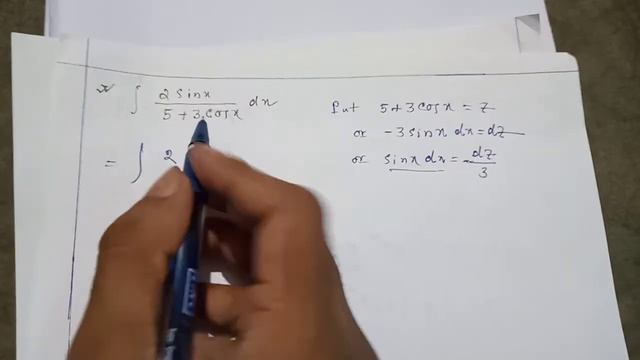 ∫ 2 sinx / 5 + 3.cosx dx
= ∫ 2
Put 5 + 3 cosx = z
or -3 sinx dx = dz
or sinx dx = -dz/3